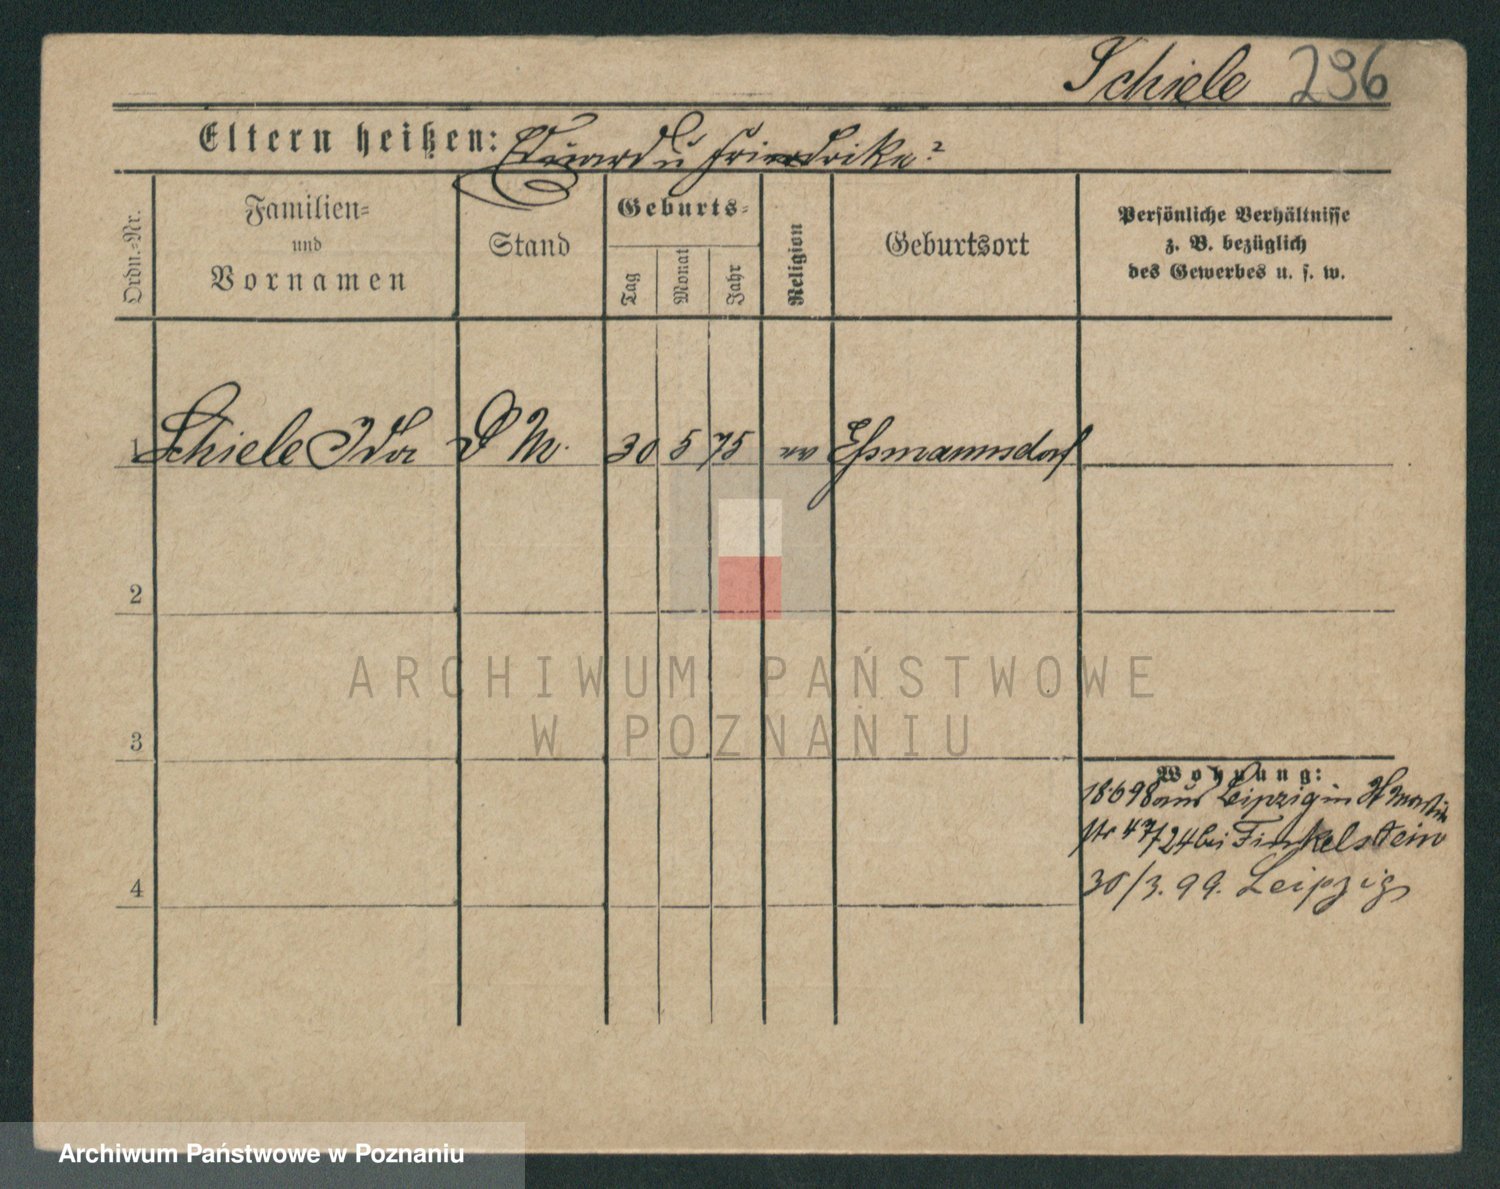 Schiele 296
Eltern heißen: Eduard u Friedrike?
Ordn.-Nr.
Familien-
und
Vornamen
Stand
Geburts-
Tag
Monat
Jahr
Religion
Geburtsort
Persönliche Verhältnisse
z. B. bezüglich
des Gewerbes u. s. w.
1 Schiele Ida D M. 30 5 75 ev Eßmannsdorf
2
3
4
Wohnung:
18 6 98 aus Leipzig in St Martin
Str 47/24 bei Finkelstein
30/3. 99. Leipzig
ARCHIWUM PAŃSTWOWE
W POZNANIU
Archiwum Państwowe w Poznaniu